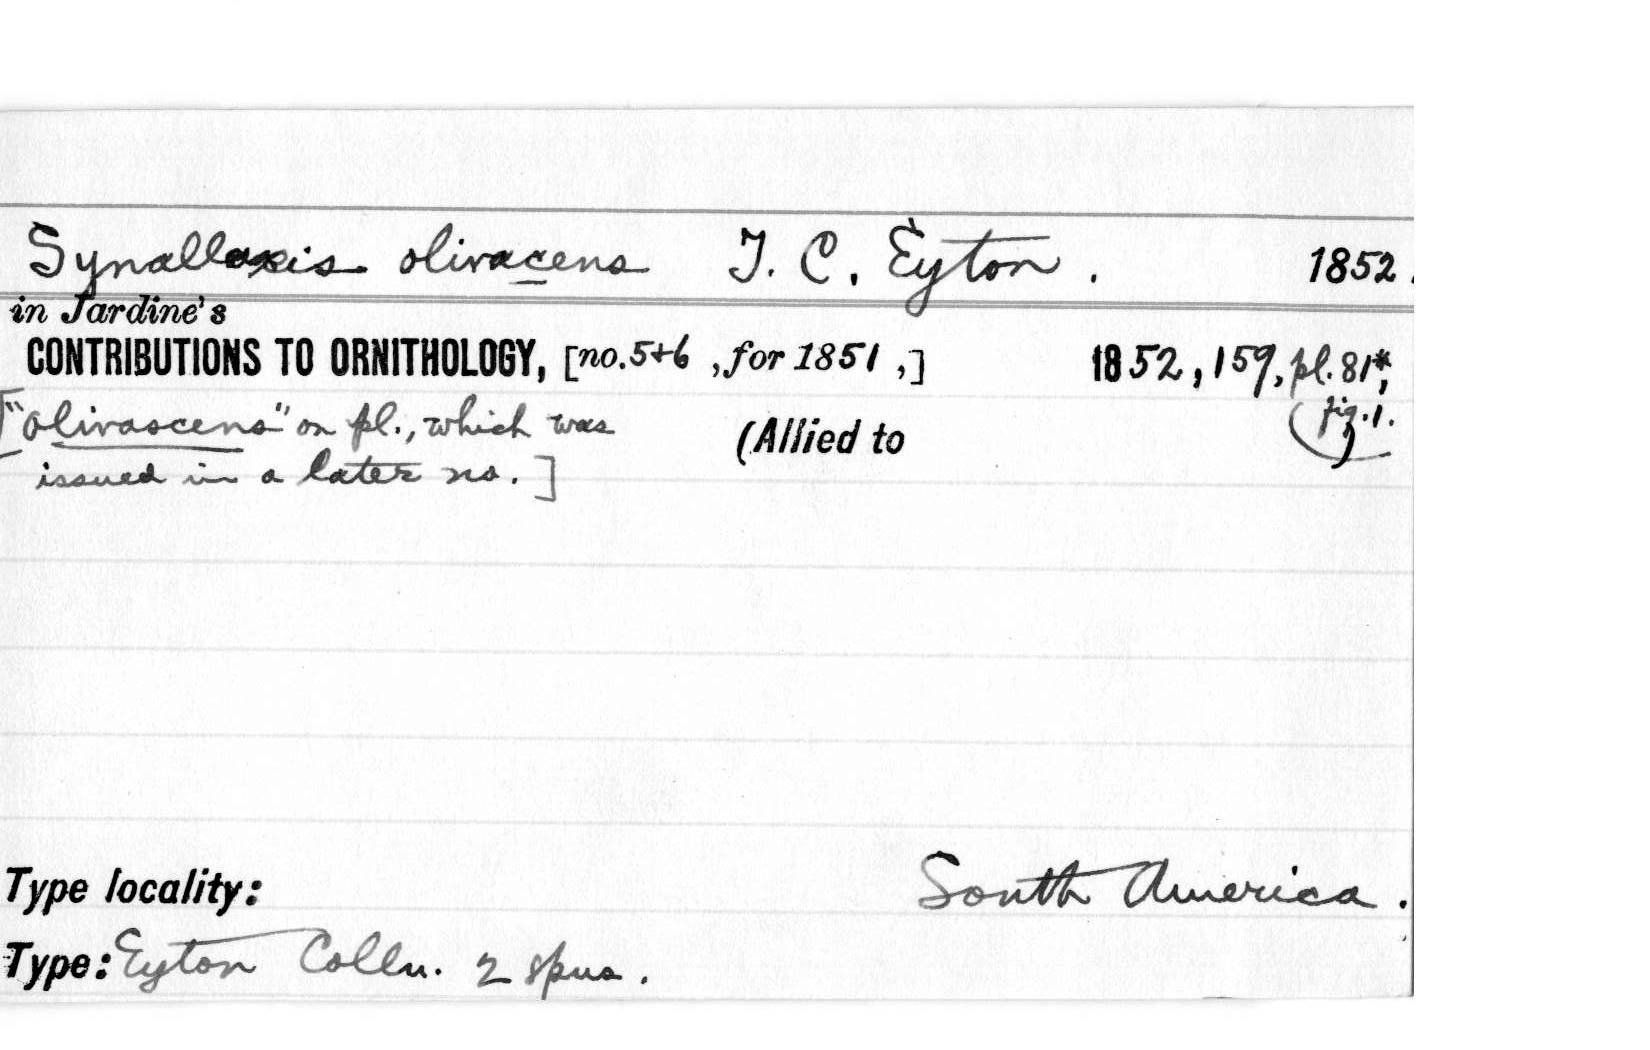 Synallaxis olivacens T. C. Eyton. 1852.
in Jardine's
CONTRIBUTIONS TO ORNITHOLOGY, [no.5+6 ,for 1851 ,] 1852, 159, pl. 81*,
["olivascens" on pl., which was (Allied to (fig. 1.)
issued in a later no.]
Type locality: South America.
Type: Eyton Colln. 2 spns.